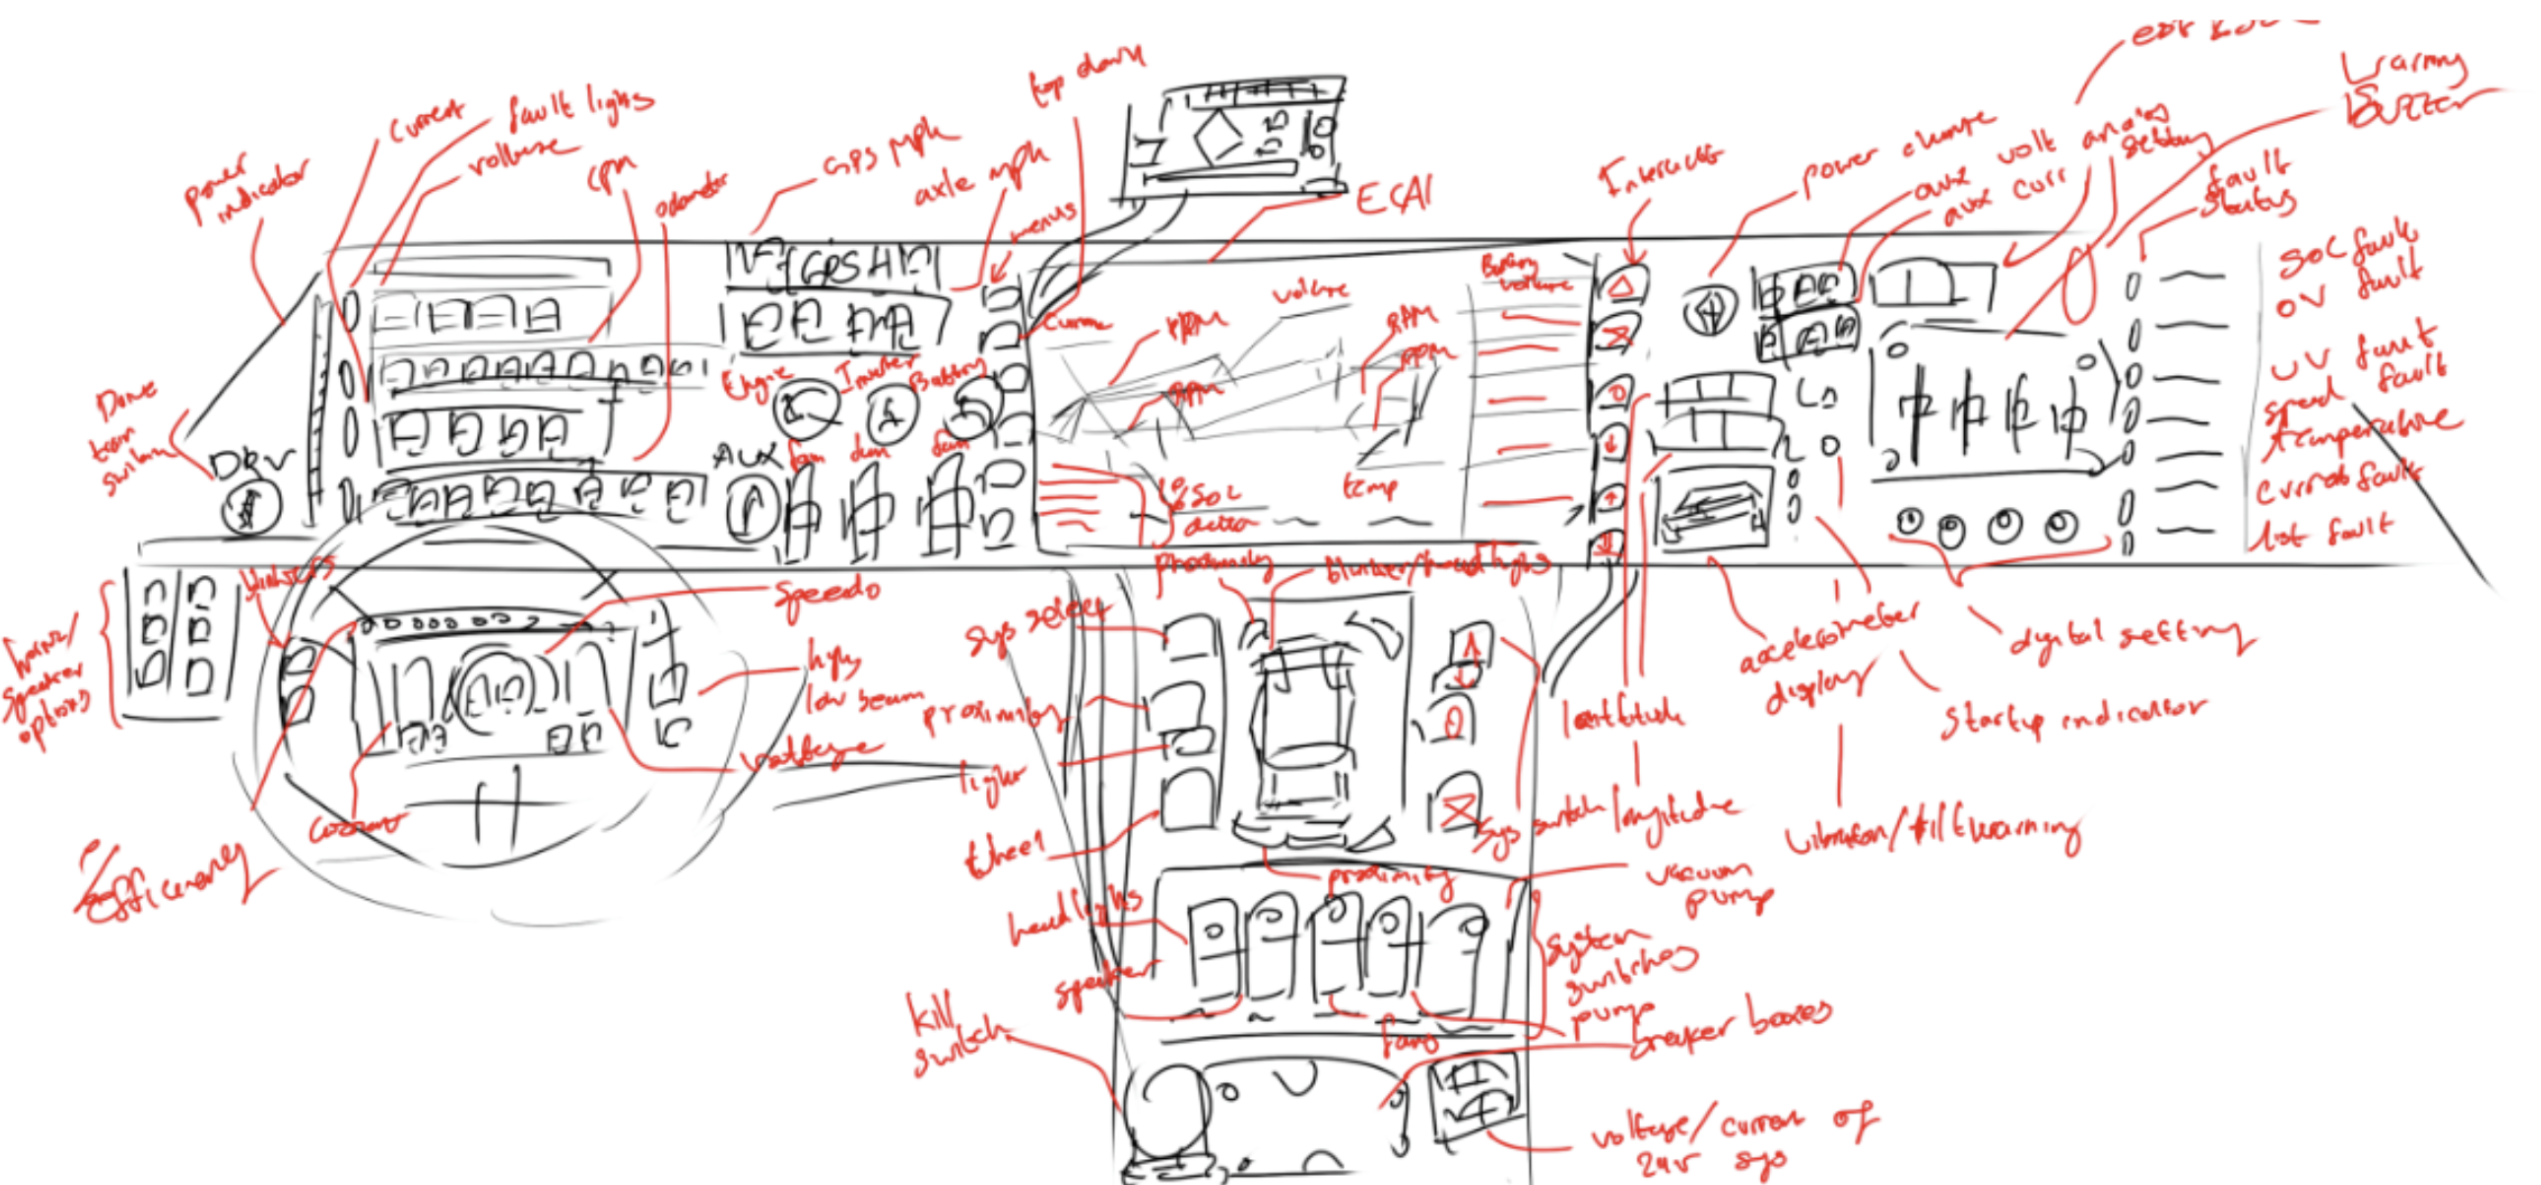 power
indicator
current
fault lights
voltage
cpm
odometer
GPS mph
axle mph
menus
top down
ECAI
Interact
power change
aux volt
aux curr
Warning
Buzzer
fault
status
SOC fault
OV fault
UV fault
speed fault
temperature
current fault
Drive
train
switch
DRV
GPS
Engine
Inverter
Battery
AUX
fan
fan
fan
current
RPM
RPM
voltage
RPM
RPM
Battery
voltage
temp
% SOC
horn/
speaker
options
blinkers
Speedo
high
low beam
voltage
current
efficiency
sys select
proximity
light
wheel
proximity
blinker/head lights
proximity
sys switch
latitude
longitude
accelerometer
display
digital setting
startup indicator
vibration/tilt warning
headlights
speaker
fans
pump
vacuum
pump
system
switches
breaker boxes
kill
switch
voltage/current of
24v sys